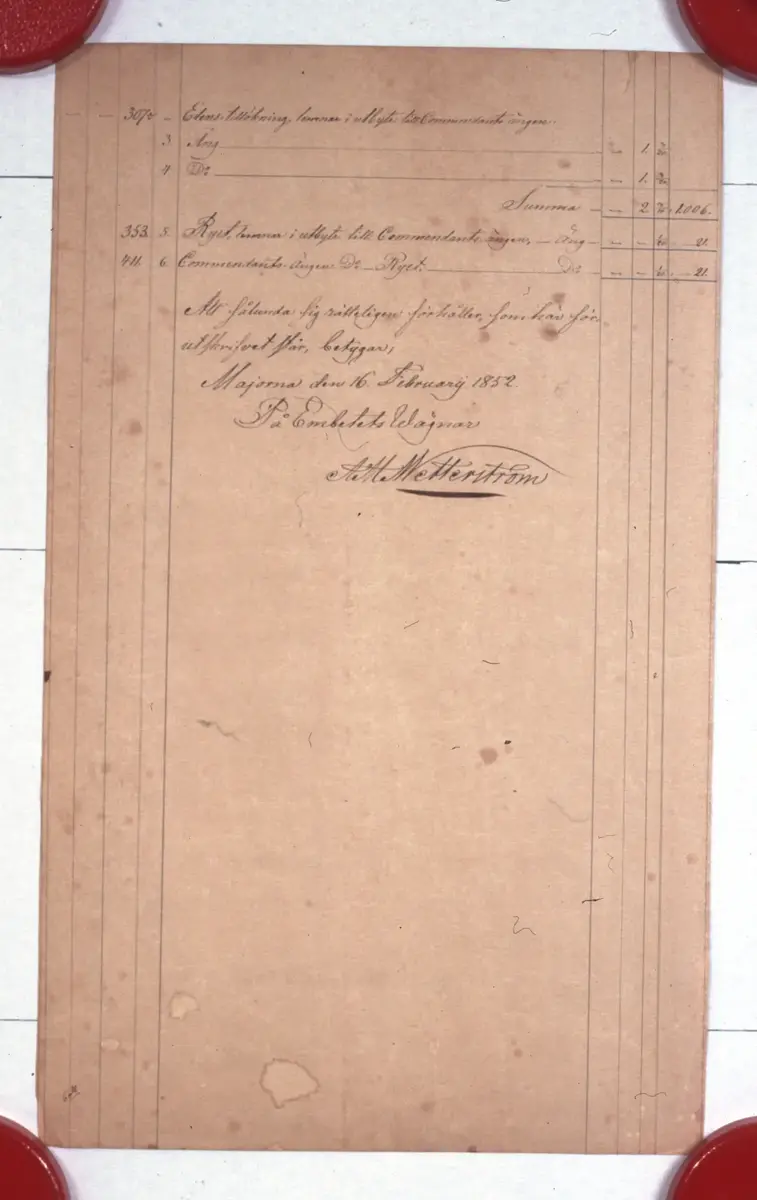 307 – Edens tillökning, lemnar i utbyte till Commendants ängen.
3 Äng – 1.
4 Do – 1.
Summa – – 2 1.006.
353. 5. Ryet, lemnar i utbyte till Commendants ängen, – Äng – – 21.
411. 6. Commendants-ängen Do Ryet. Do – – 21.
Att sålunda sig rätteligen förhåller, som här för
utskrifvet står, betygar;
Majorna den 16. Februarij 1852.
På Embetets Wägnar
Wetterström